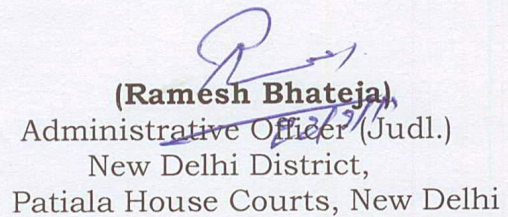 (Ramesh Bhateja)
Administrative Officer (Judl.)
New Delhi District,
Patiala House Courts, New Delhi